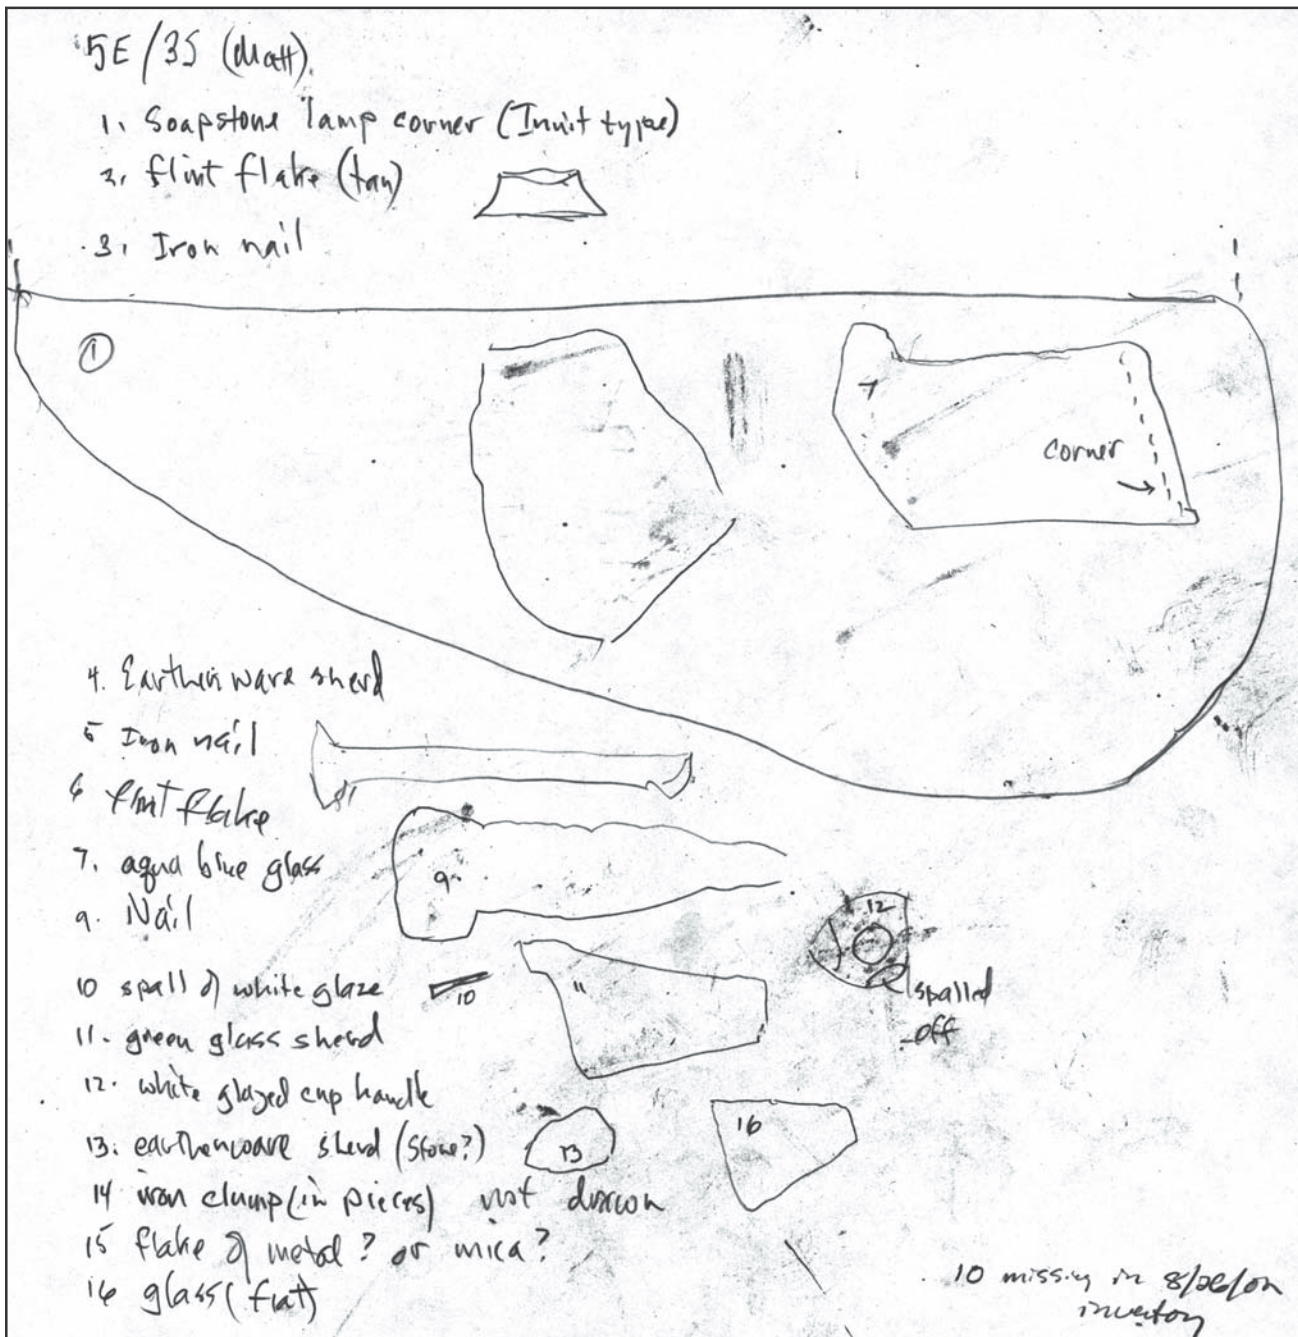 5E/3S (Matt)
1. Soapstone lamp corner (Inuit type)
2. flint flake (tan)
3. Iron nail
1
corner
4. Earthenware sherd
5 Iron nail
6 flint flake
7. aqua blue glass
9. Nail
9.
12
spalled
off
10 spall of white glaze
10
11
11. green glass sherd
12. white glazed cup handle
13. earthenware sherd (stone?)
13
16
14 iron clump (in pieces) not drawn
15 flake of metal? or mica?
16 glass (flat)
10 missing in
inventory